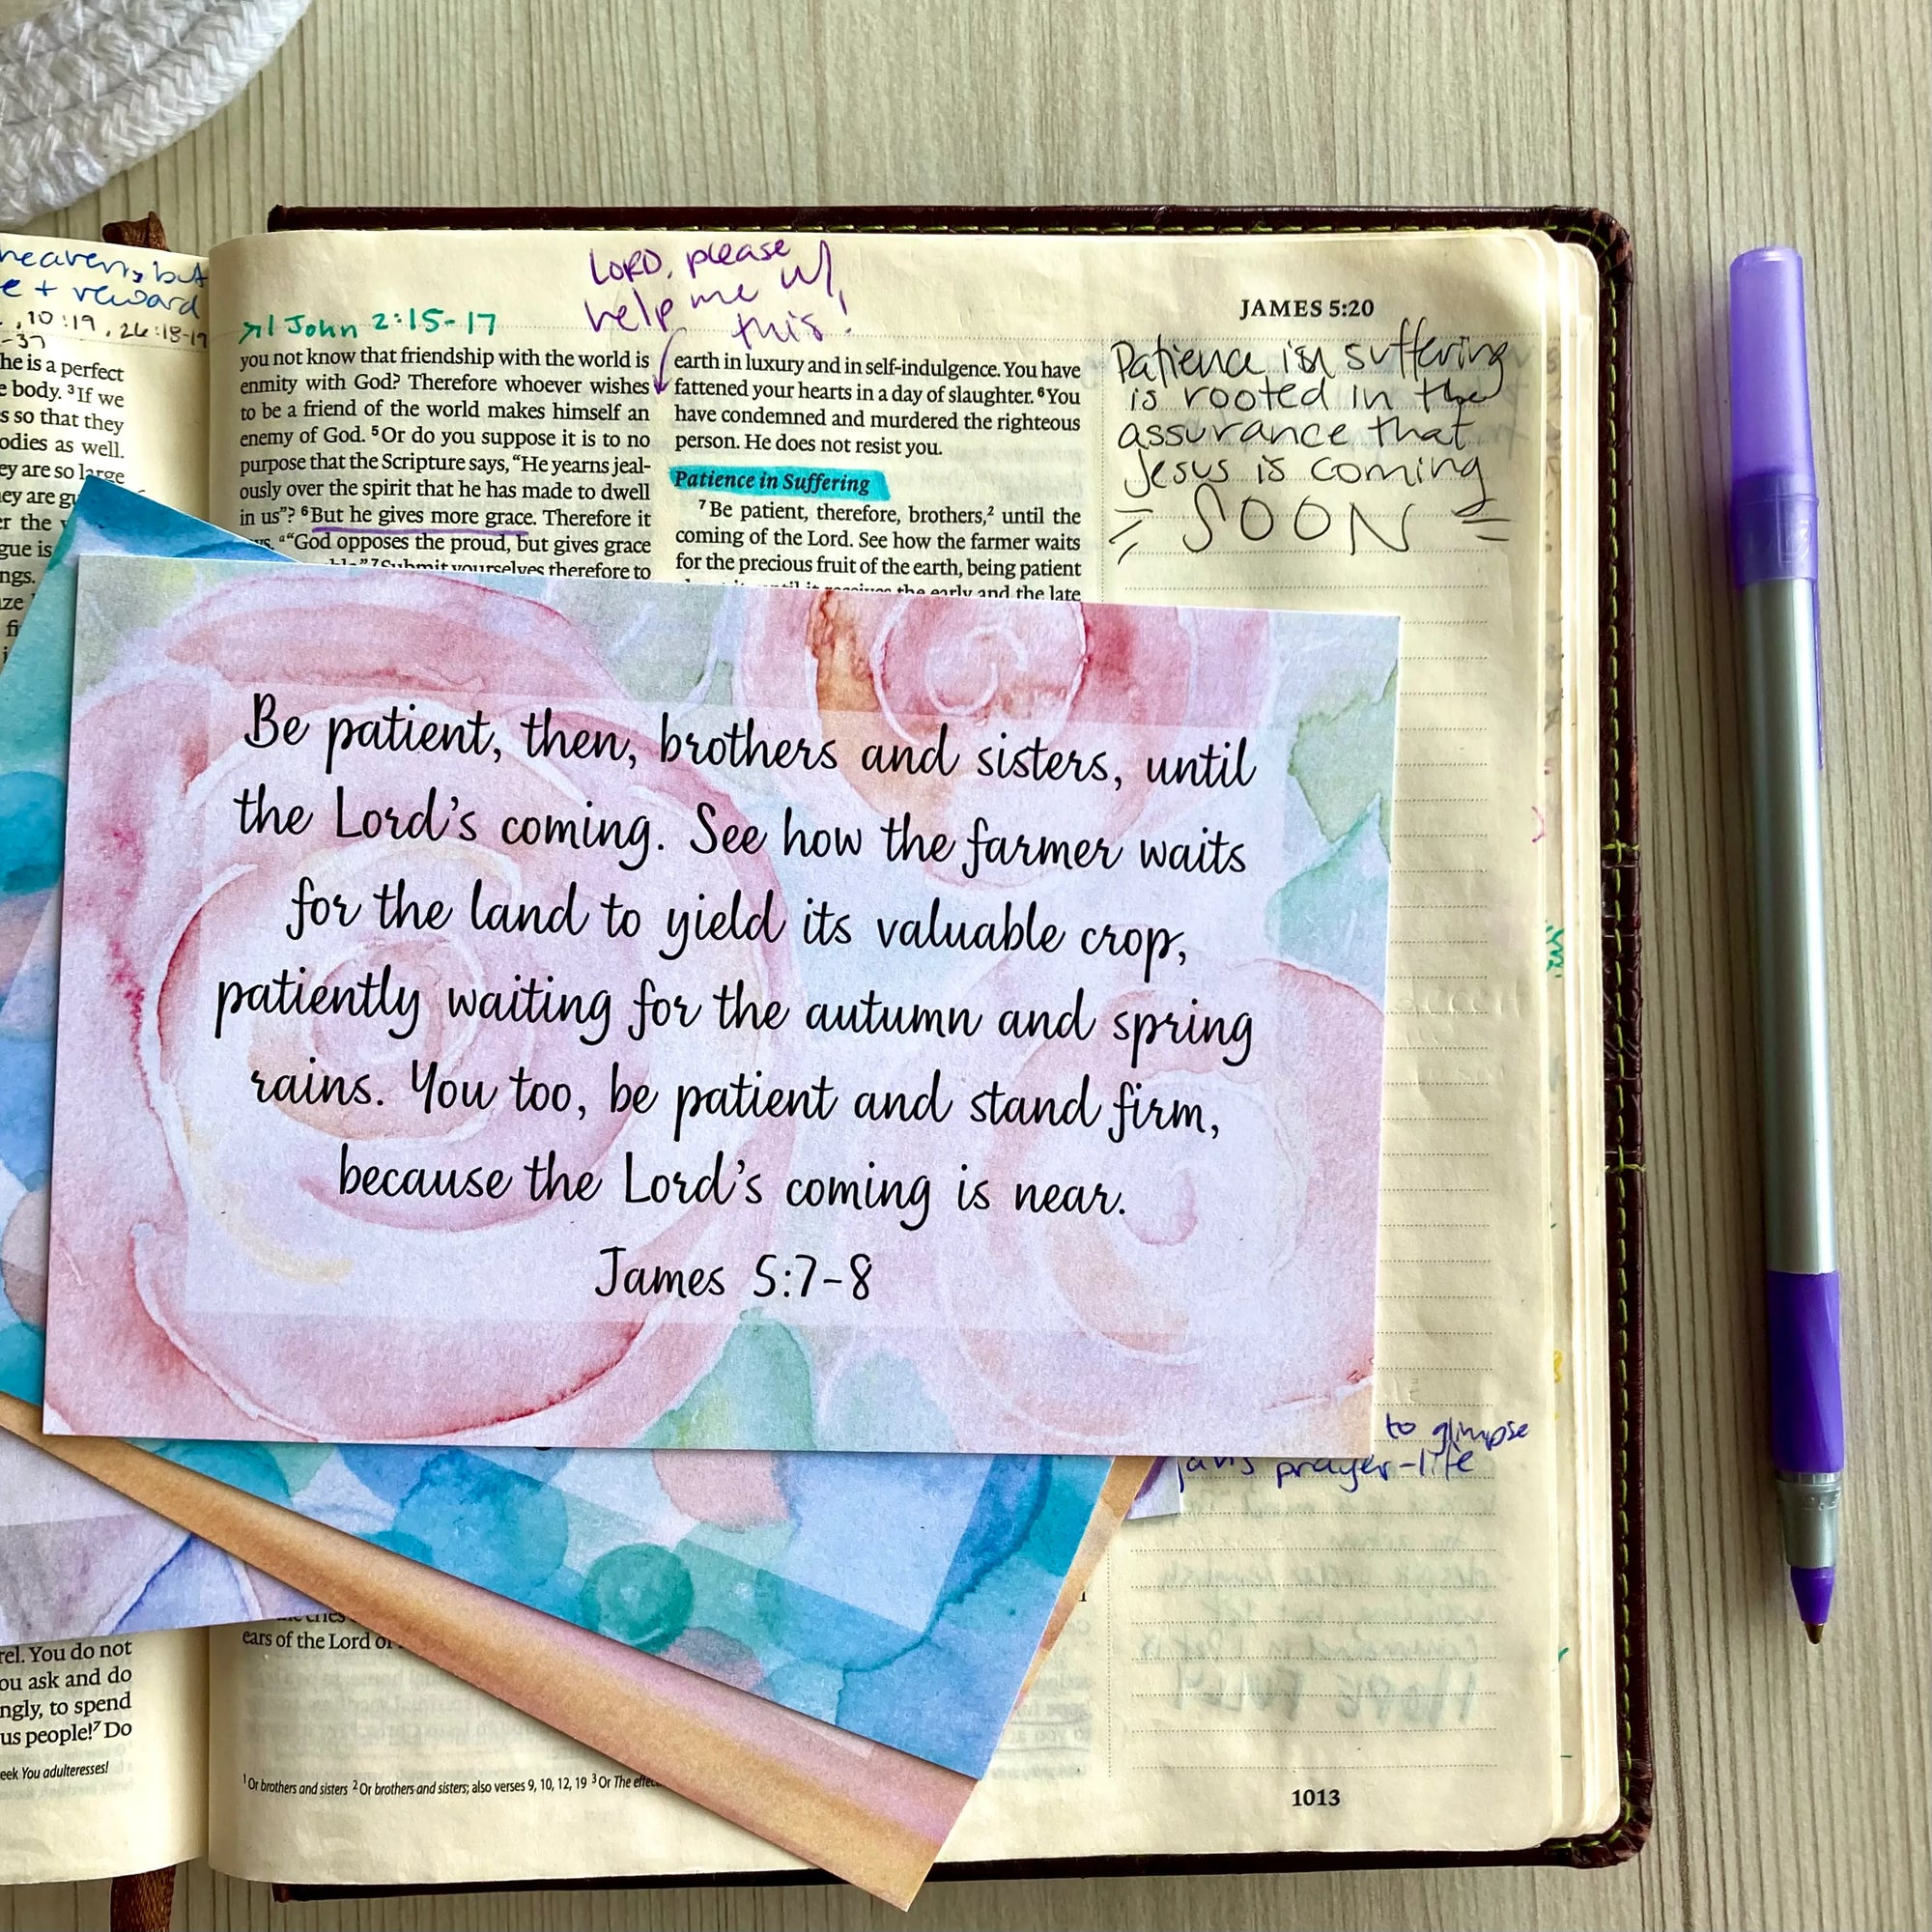 heaven, but
e + reward
, 10:19, 26:18-19
-37
he is a perfect
e body. ³If we
s so that they
odies as well.
ey are so large
ey are gu
er the
gue is
ngs.
rel. You do not
ou ask and do
ngly, to spend
us people!⁷ Do
eek You adulteresses!
↗1 John 2:15-17
you not know that friendship with the world is
enmity with God? Therefore whoever wishes
to be a friend of the world makes himself an
enemy of God. ⁵Or do you suppose it is to no
purpose that the Scripture says, “He yearns jeal-
ously over the spirit that he has made to dwell
in us”? ⁶But he gives more grace. Therefore it
“God opposes the proud, but gives grace
⁷Submit yourselves therefore to
ears of the Lord of
LORD, please
help me w/
this!
earth in luxury and in self-indulgence. You have
fattened your hearts in a day of slaughter. ⁶You
have condemned and murdered the righteous
person. He does not resist you.
Patience in Suffering
⁷Be patient, therefore, brothers,² until the
coming of the Lord. See how the farmer waits
for the precious fruit of the earth, being patient
the early and the late
JAMES 5:20
Patience in suffering
is rooted in the
assurance that
Jesus is coming
SOON
Be patient, then, brothers and sisters, until
the Lord’s coming. See how the farmer waits
for the land to yield its valuable crop,
patiently waiting for the autumn and spring
rains. You too, be patient and stand firm,
because the Lord’s coming is near.
James 5:7-8
to glimpse
prayer-life
¹Or brothers and sisters ²Or brothers and sisters; also verses 9, 10, 12, 19 ³Or The effec
1013